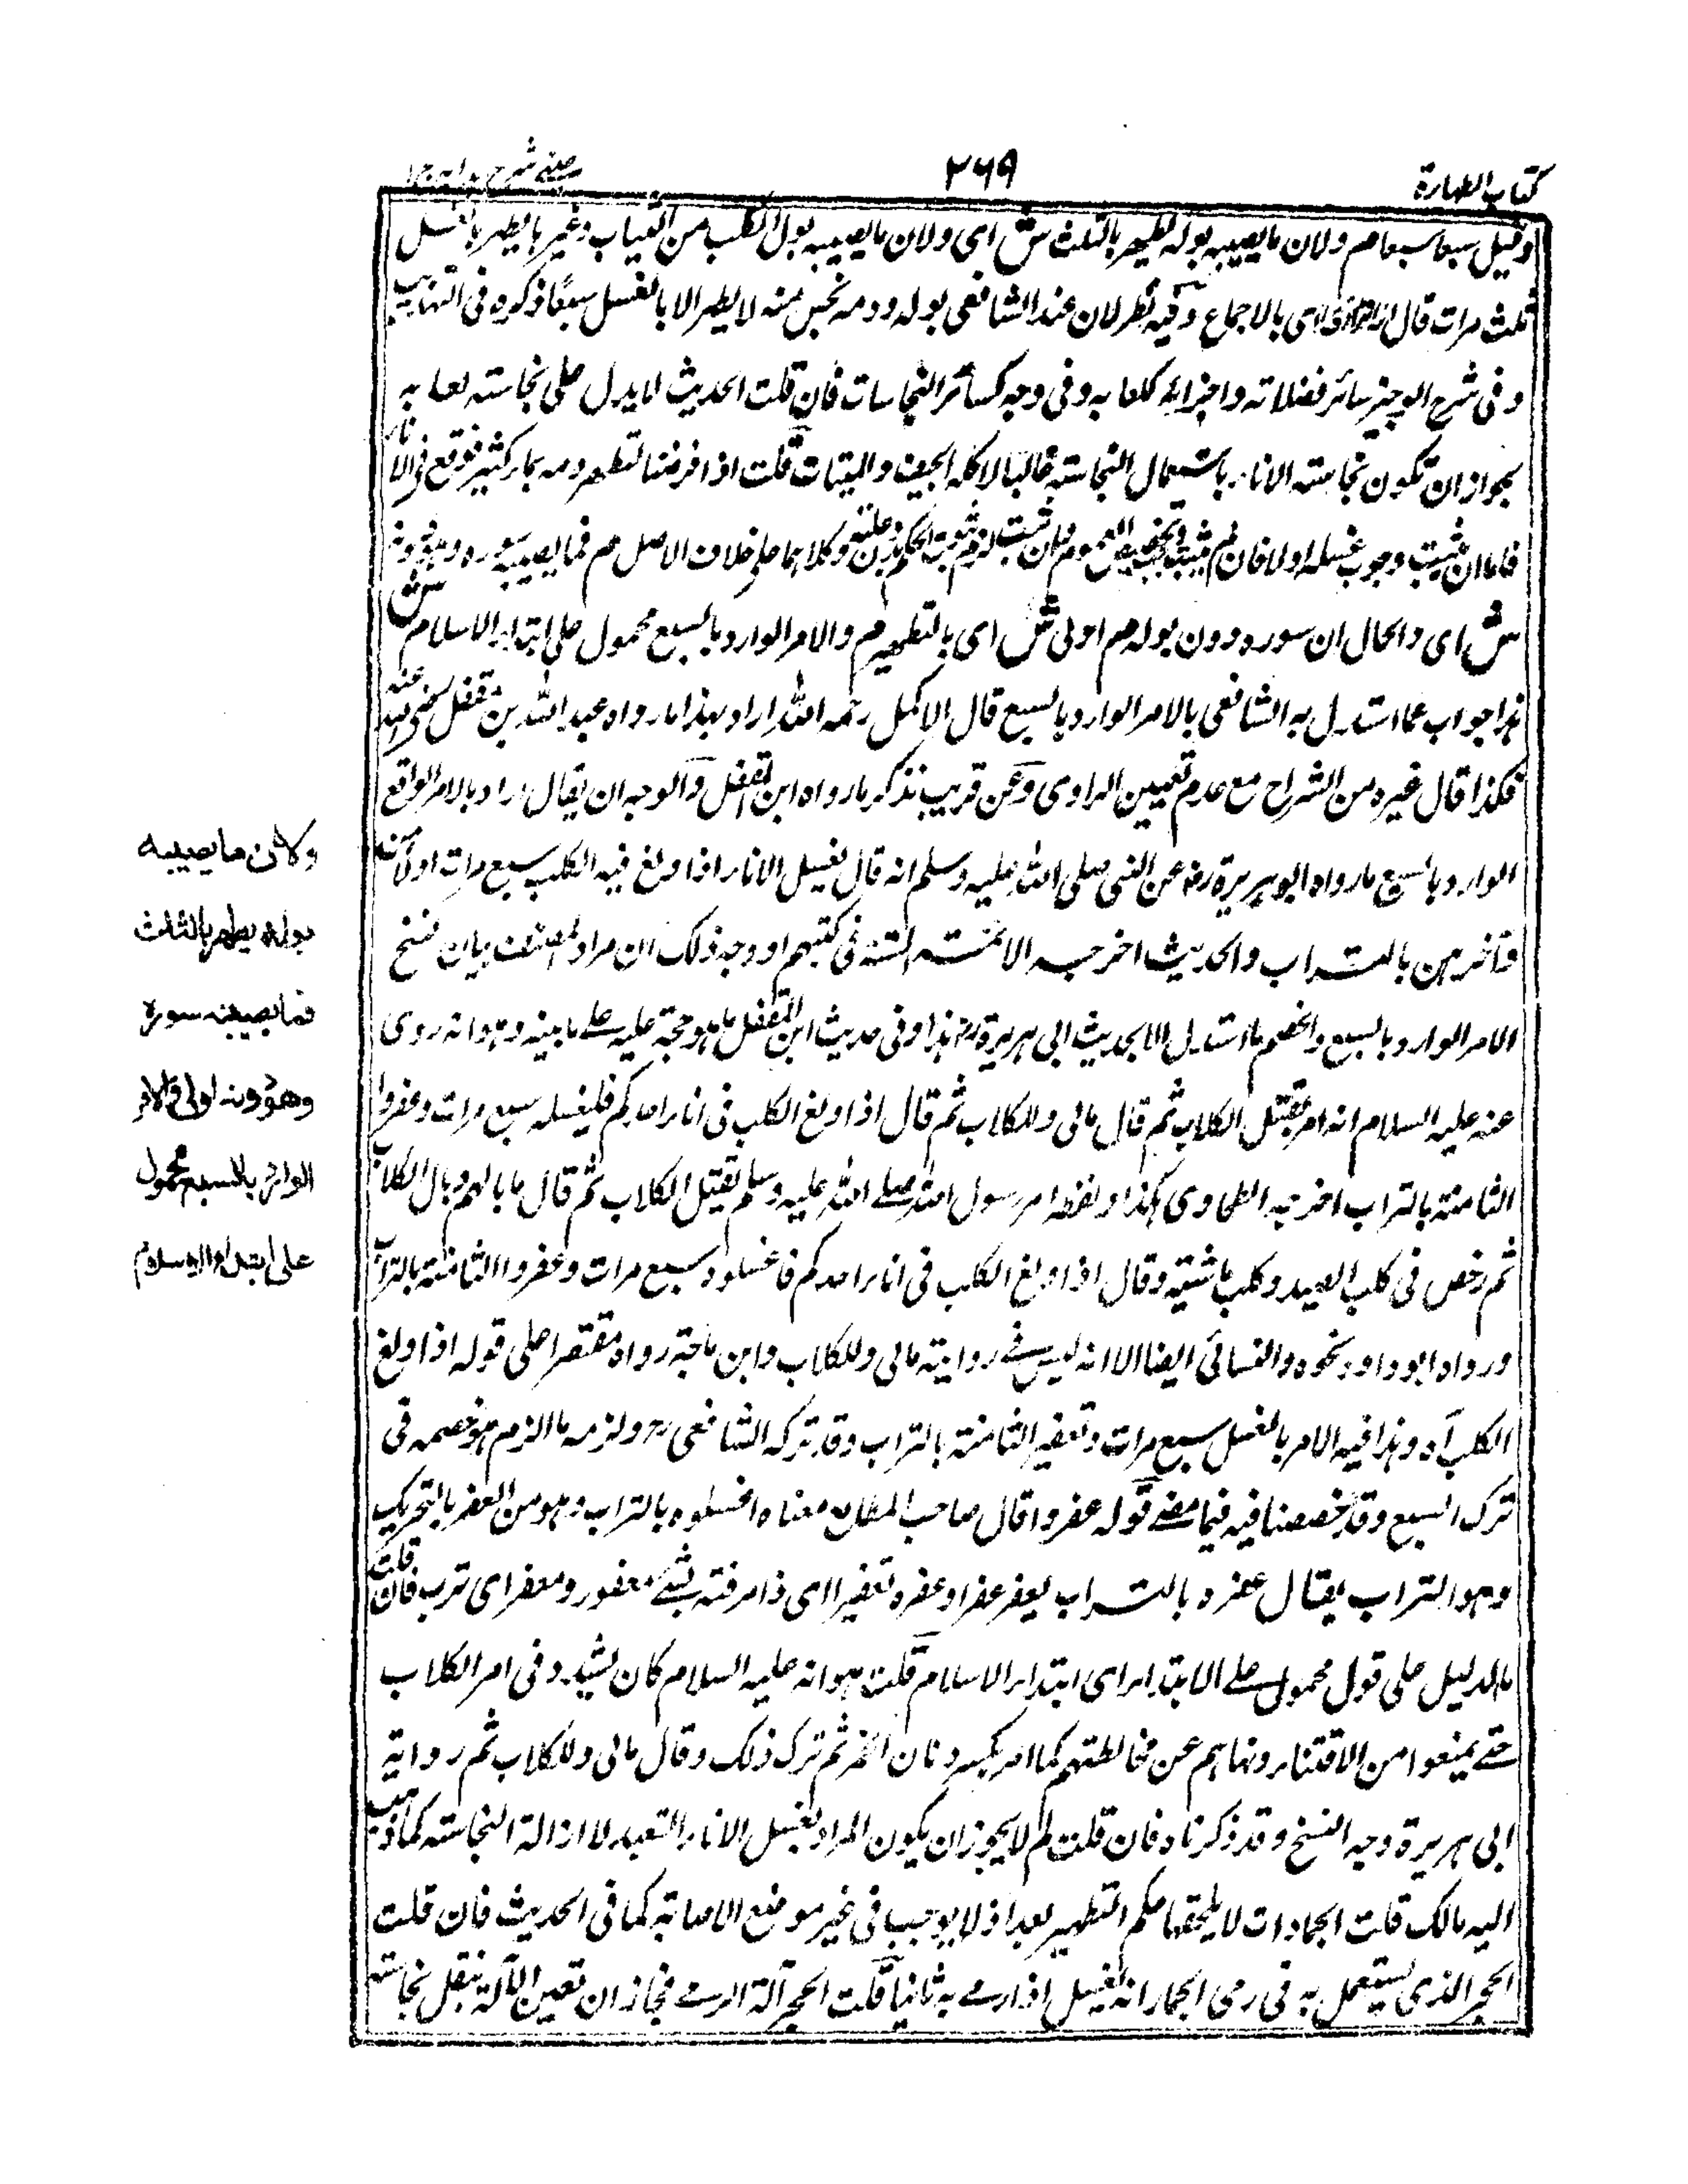 كتاب الطهارة
٢٦٩
عيني شرح هداية ج ١
وقيل سبعا سبعا م ولان ما يصيبه بوله يطهر بالثلث ش اى ولان ما يصيبه بول الكلب من الثياب وغيرها يطهر بالغسل
ثلث مرات قال الاترازى اى بالاجماع وفيه نظر لان عند الشافعى بوله ودمه نجس منه لا يطهر الا بالغسل سبعًا ذكره فى التهذيب
وفى شرح الوجيز سائر فضلاته واجزائه كلعابه وفى وجه كسائر النجاسات فان قلت الحديث لا يدل على نجاسته لعابه
بجواز ان تكون نجاسته الاناء باستعمال النجاسة غالبا لاكله الجيف والميتات قلت اذا فرضنا لتطهر ومه بماء كثير فوقع فى الاناء
فاما ان يثبت وجوب غسله اولا فان لم يثبت تخصيص العموم وان ثبت لزم ثبوت الحكم بدون علته وكلاهما على خلاف الاصل م فما يصيبه سوره وهو دونه
ش اى والحال ان سوره دون بوله م اولى ش اى بالتطهير م والامر الوارد بالسبع محمول على ابتداء الاسلام ش
هذا جواب عما استدل به الشافعى بالامر الوارد بالسبع قال الاكمل رحمه الله اراد بهذا ما رواه عبد الله بن مغفل رضى الله عنه
فكذا قال غيره من الشراح مع عدم تعيين الراوى وعن قريب نذكر ما رواه ابن المغفل والوجه ان يقال اراد بالامر الواقع
الوارد بالسبع ما رواه ابو هريرة رض عن النبى صلى الله عليه وسلم انه قال يغسل الاناء اذا ولغ فيه الكلب سبع مرات اولاهن
وآخرهن بالتراب والحديث اخرجه الائمة الستة فى كتبهم او وجه ذلك ان مراد المصنف بيان نسخ
الامر الوارد بالسبع والخصم ما استدل الا بحديث ابى هريرة رض هذا وفى حديث ابن المغفل ما هو حجة عليه على ما بينه وهو انه روى
عنه عليه السلام انه امر بقتل الكلاب ثم قال مالى وللكلاب ثم قال اذا ولغ الكلب فى اناء احدكم فليغسله سبع مرات وعفروا
الثامنة بالتراب اخرجه الطحاوى هكذا ولفظه امر رسول الله صلى الله عليه وسلم بقتل الكلاب ثم قال ما بالهم وبال الكلاب
ثم رخص فى كلب الصيد وكلب ماشية وقال اذا ولغ الكلب فى اناء احدكم فاغسلوه سبع مرات وعفروا الثامنة بالتراب
ورواه ابو داود نحوه والنسائى ايضا الا انه ليس فى روايته مالى وللكلاب وابن ماجة رواه مقتصرا على قوله اذا ولغ
الكلب آه وهذا فيه الامر بالغسل سبع مرات وتعفير الثامنة بالتراب وقد تركه الشافعى رح ولزمه ما الزم هو خصمه فى
ترك السبع وقد خصصنا فيه فيما مضى قوله عفروا قال صاحب المطالع معناه اغسلوه بالتراب وهو من العفر بالتحريك
وهو التراب يقال عفره بالتراب يعفر عفرا وعفره تعفيرا اى ذا مرغته بشئ معفور ومعفر اى ترب فان قلت
ما الدليل على قول محمول على الابتداء اى ابتداء الاسلام قلت هو انه عليه السلام كان يشدد فى امر الكلاب
حتى يمنعوا من الاقتناء ونهاهم عن مخالطتهم كما امر بكسر دنان الخمر ثم ترك ذلك وقال مالى وللكلاب ثم رواية
ابى هريرة وجه النسخ وقد ذكرناه فان قلت لم لا يجوز ان يكون المراد بغسل الاناء التعبد لا ازالة النجاسة كما ذهب
اليه مالك قلت الجمادات لا يلحقها حكم التطهير بعد اذ لا يوجب فى غير موضع الاصابة كما فى الحديث فان قلت
الحجر الذى يستعمل به فى رمى الجمار انه يغسل اذا رمى به ثانيا قلت الحجر آلة الرمى فجاز ان تعين الآلة بنقل نجاسته
ولان ما يصيبه
بوله يطهر بالثلث
فما يصيبه سوره
وهو دونه اولى والامر
الوارد بالسبع محمول
على ابتداء الاسلام